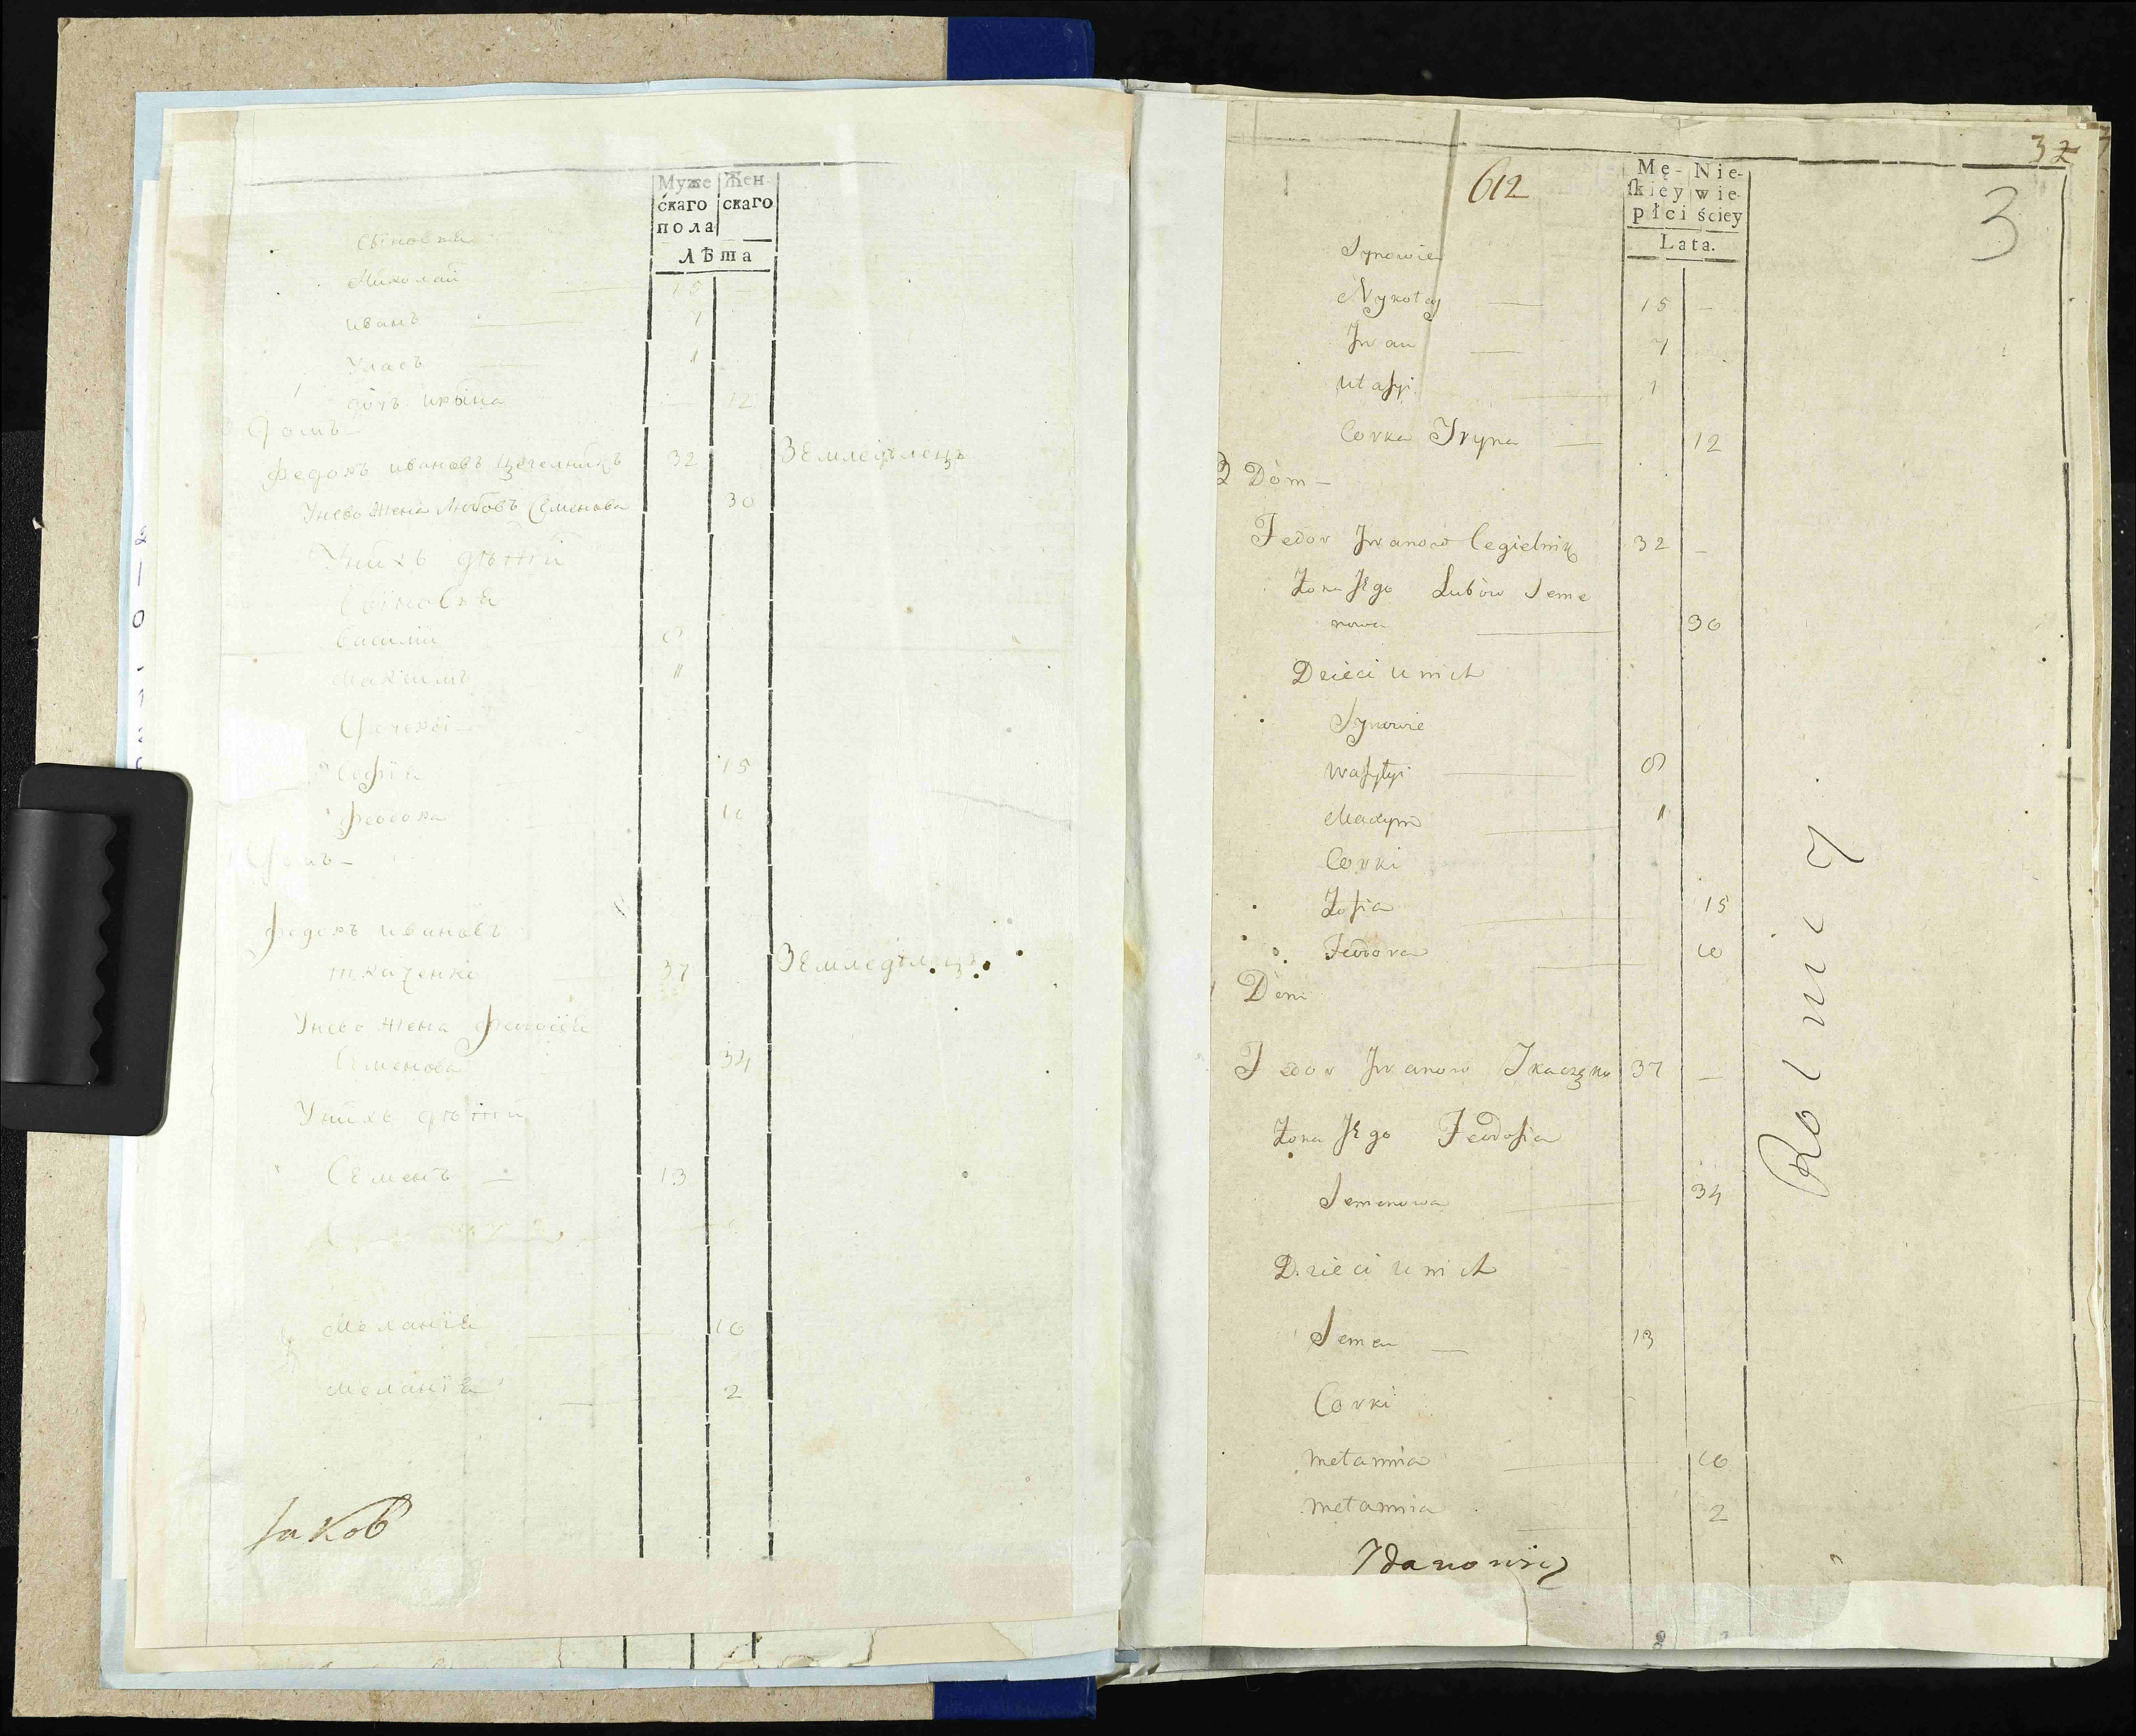 Муже Жен
скаго скаго
пола
Лѣта
Сыновья
Николай 15
иванъ 7
Уласъ 1
дочь ирына 12
Домъ
Федоръ ивановъ Цегелникъ 32 Земледѣлецъ
Унево жена Любовъ Семенова 30
Унихъ дѣти
Сыновья
Василий 8
Максимъ "
Дочери
Софія 15
Феодора 10
Домъ
Федоръ ивановъ
ткаченко 37 Земледѣлецъ
Унево жена Феодосія
Семенова 34
Унихъ дѣти
Семенъ 13
Меланія 10
Меланія 2
Iаков
32
3
612
Mę- Nie-
skiey wie-
płci ściey
Lata.
Synowie
Nykołay 15 —
Jwan 7
Ułasyi 1
Corka Iryna 12
Dom
Fedor Jwanow Cegielnik 32 —
Zona Jego Lubow Seme
nowa 30
Dzieci u nich
Synowie
Wasylyi 8
Maxym "
Corki
Zofia 15
Feodora 10
Dom
Fedor Jwanow Tkaczenko 37 —
Zona Jego Feodosia
Semenowa 34
Dzieci u nich
Semen 13
Corki
Mełannia 10
Mełannia 2
Rolnicy